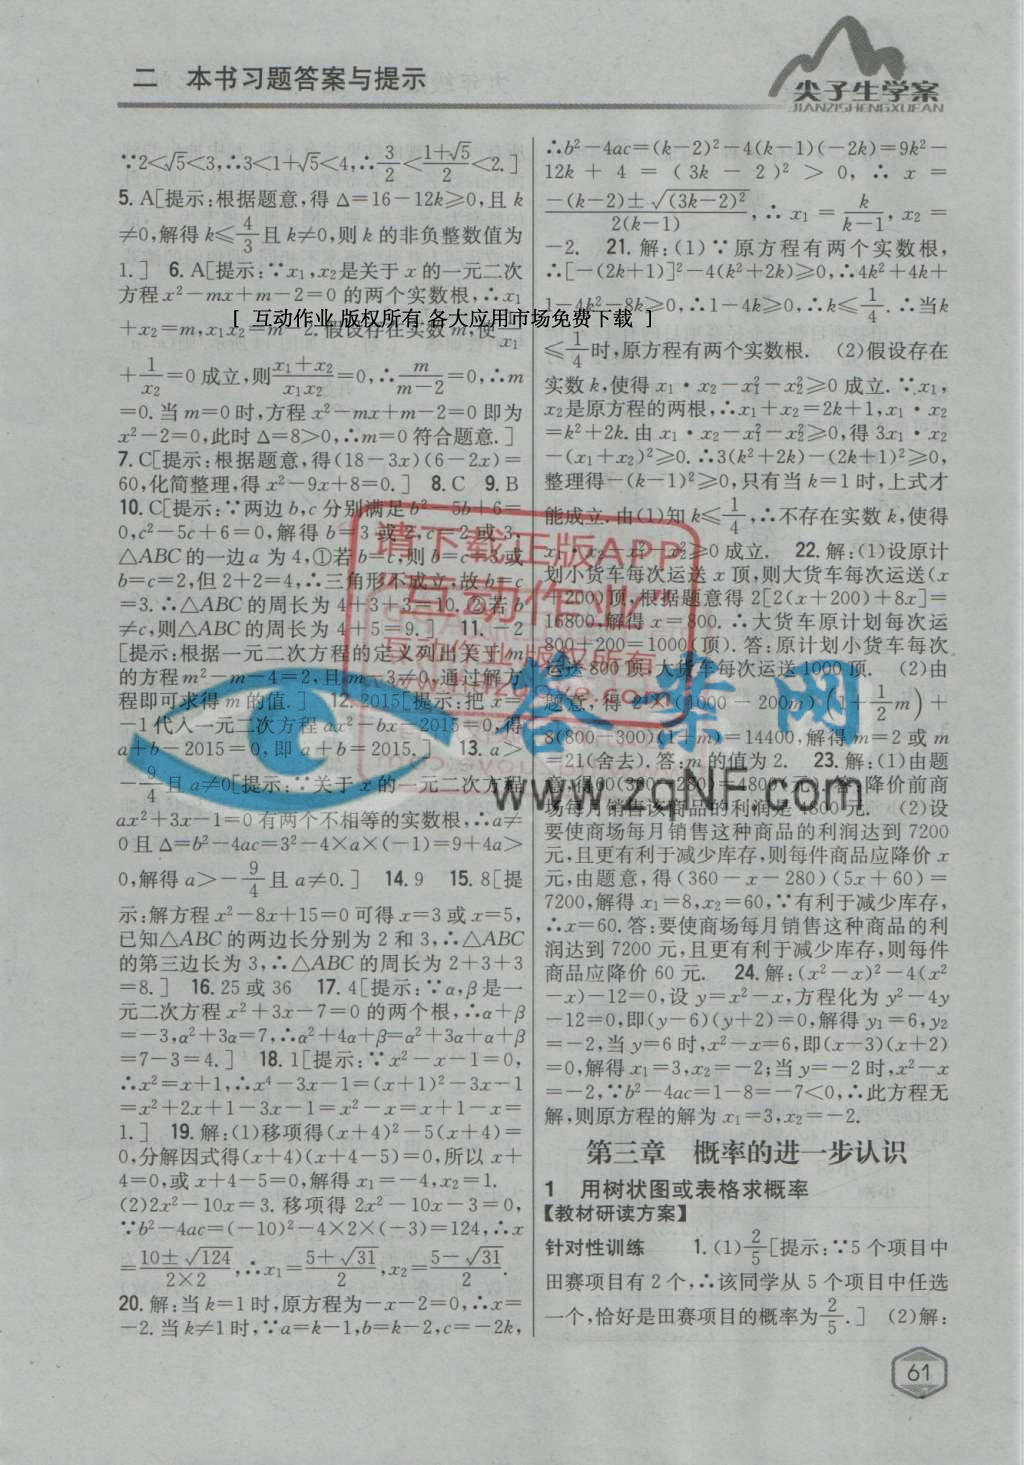 二 本书习题答案与提示
尖子生学案
JIANZISHENGXUEAN
∵2<√5<3,∴3<1+√5<4,∴3/2<(1+√5)/2<2.]
5. A[提示:根据题意,得 Δ=16-12k≥0,且 k
≠0,解得 k≤4/3且 k≠0,则 k 的非负整数值为
1.] 6. A[提示:∵x₁,x₂是关于 x 的一元二次
方程 x²-mx+m-2=0 的两个实数根,∴x₁
+x₂=m,x₁x₂=m-2.假设存在实数 m,使1/x₁
+1/x₂=0 成立,则(x₁+x₂)/(x₁x₂)=0,∴m/(m-2)=0,∴m
=0.当 m=0 时,方程 x²-mx+m-2=0 即为
x²-2=0,此时 Δ=8>0,∴m=0 符合题意.]
7. C[提示:根据题意,得(18-3x)(6-2x)=
60,化简整理,得 x²-9x+8=0.] 8. C 9. B
10. C[提示:∵两边 b,c 分别满足 b²-5b+6=
0,c²-5c+6=0,解得 b=3 或 2,c=2 或 3,
△ABC的一边 a 为 4,①若 b=c,则 b=c=3 或
b=c=2,但 2+2=4,∴三角形不成立,故 b=c
=3.∴△ABC 的周长为 4+3+3=10.②若 b
≠c,则△ABC 的周长为 4+5=9.] 11. -2
[提示:根据一元二次方程的定义列出关于 m
的方程 m²-m-4=2,且 m-3≠0,通过解方
程即可求得 m 的值.] 12. 2015[提示:把 x=
-1 代入一元二次方程 ax²-bx-2015=0,得
a+b-2015=0,即 a+b=2015.] 13. a>
-9/4且 a≠0[提示:∵关于 x 的一元二次方程
ax²+3x-1=0 有两个不相等的实数根,∴a≠
0 且 Δ=b²-4ac=3²-4×a×(-1)=9+4a>
0,解得 a>-9/4且 a≠0.] 14. 9 15. 8[提
示:解方程 x²-8x+15=0 可得 x=3 或 x=5,
已知△ABC 的两边长分别为 2 和 3,∴△ABC
的第三边长为 3,∴△ABC 的周长为 2+3+3
=8.] 16. 25 或 36 17. 4[提示:∵α,β是一
元二次方程 x²+3x-7=0 的两个根,∴α+β
=-3,α²+3α=7,∴α²+4α+β=α²+3α+α+β
=7-3=4.] 18. 1[提示:∵x²-x-1=0,
∴x²=x+1,∴x⁴-3x-1=(x+1)²-3x-1
=x²+2x+1-3x-1=x²-x=x+1-x=
1.] 19. 解:(1)移项得(x+4)²-5(x+4)=
0,分解因式得(x+4)(x+4-5)=0,所以 x+
4=0,或 x+4-5=0,解得 x₁=-4,x₂=1.
(2)2x²-10x=3. 移项得 2x²-10x-3=0,
∵b²-4ac=(-10)²-4×2×(-3)=124,∴x
=(10±√124)/(2×2),∴x₁=(5+√31)/2,x₂=(5-√31)/2.
20. 解:当 k=1 时,原方程为-x-2=0,∴x=
-2.当 k≠1 时,∵a=k-1,b=k-2,c=-2k,
∴b²-4ac=(k-2)²-4(k-1)(-2k)=9k²-
12k+4=(3k-2)²>0,∴x=
(-(k-2)±√(3k-2)²)/(2(k-1)),∴x₁=k/(k-1),x₂=
-2. 21. 解:(1)∵原方程有两个实数根,
∴[-(2k+1)]²-4(k²+2k)≥0,∴4k²+4k+
1-4k²-8k≥0,∴1-4k≥0,∴k≤1/4.∴当k
≤1/4时,原方程有两个实数根. (2)假设存在
实数 k,使得 x₁·x₂-x₁²-x₂²≥0 成立.∵x₁,
x₂是原方程的两根,∴x₁+x₂=2k+1,x₁·x₂
=k²+2k.由 x₁·x₂-x₁²-x₂²≥0,得 3x₁·x₂
-(x₁+x₂)²≥0.∴3(k²+2k)-(2k+1)²≥0,
整理得-(k-1)²≥0,只有当 k=1 时,上式才
能成立.由(1)知 k≤1/4,∴不存在实数 k,使得
x₁·x₂-x₁²-x₂²≥0 成立. 22. 解:(1)设原计
划小货车每次运送 x 顶,则大货车每次运送(x
+200)顶,根据题意得 2[2(x+200)+8x]=
16800,解得 x=800.∴大货车原计划每次运
800+200=1000(顶).答:原计划小货车每次
运送 800 顶,大货车每次运送 1000 顶. (2)由
题意,得 2×(1000-200m)(1+1/2m)+
8(800-300)(1+m)=14400,解得 m=2 或 m
=21(舍去).答:m 的值为 2. 23. 解:(1)由题
意,得60(360-280)=4800(元).答:降价前商
场每月销售该商品的利润是 4800 元. (2)设
要使商场每月销售这种商品的利润达到 7200
元,且更有利于减少库存,则每件商品应降价 x
元,由题意,得(360-x-280)(5x+60)=
7200,解得 x₁=8,x₂=60,∵有利于减少库存,
∴x=60.答:要使商场每月销售这种商品的利
润达到 7200 元,且更有利于减少库存,则每件
商品应降价 60 元. 24. 解:(x²-x)²-4(x²
-x)-12=0,设 y=x²-x,方程化为 y²-4y
-12=0,即(y-6)(y+2)=0,解得 y₁=6,y₂
=-2,当 y=6 时,x²-x=6,即(x-3)(x+2)
=0,解得 x₁=3,x₂=-2;当 y=-2 时,x²-x
=-2,∵b²-4ac=1-8=-7<0,∴此方程无
解,则原方程的解为 x₁=3,x₂=-2.
第三章 概率的进一步认识
1 用树状图或表格求概率
【教材研读方案】
针对性训练 1.(1)2/5[提示:∵5 个项目中
田赛项目有 2 个,∴该同学从 5 个项目中任选
一个,恰好是田赛项目的概率为2/5.] (2)解:
61
[ 互动作业 版权所有 各大应用市场免费下载 ]
请下载正版APP
"互动作业"
互动作业版权所有
答案网
www.zqNF.com